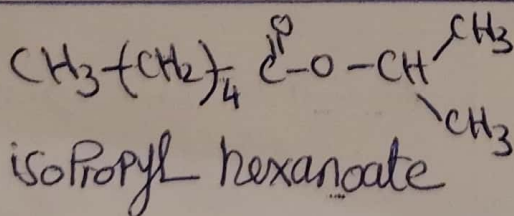 CH3-(CH2)4-C-O-CH
O
CH3
CH3
isopropyl hexanoate